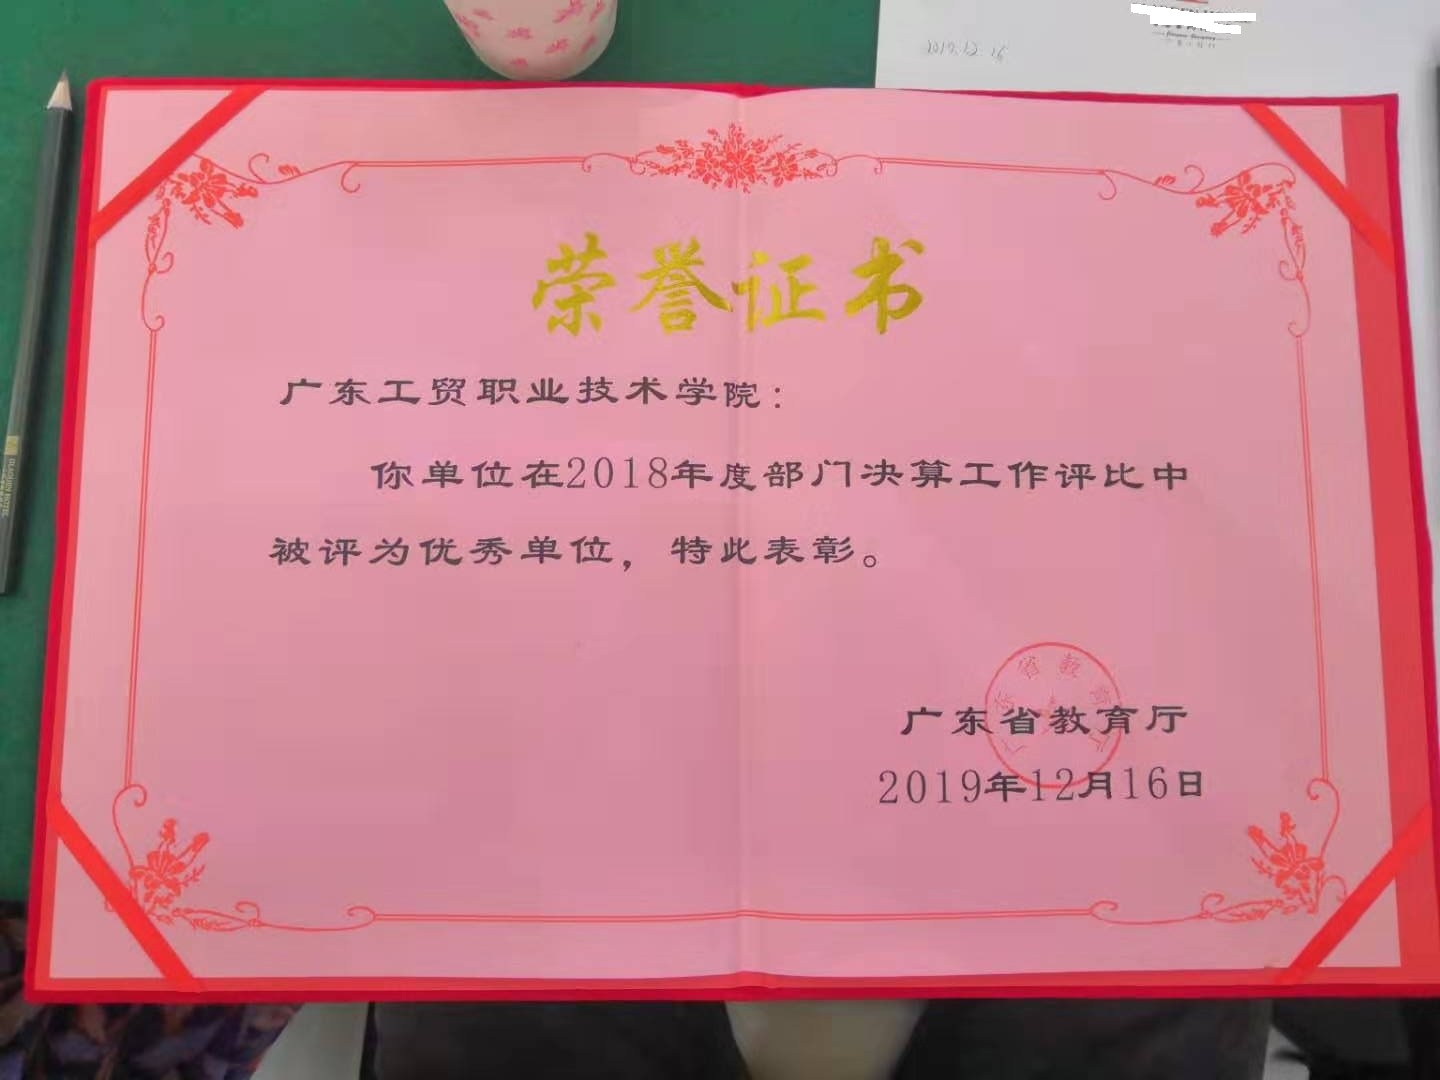 2019.12.16
荣誉证书
广东工贸职业技术学院：
你单位在2018年度部门决算工作评比中
被评为优秀单位，特此表彰。
广东省教育厅
2019年12月16日